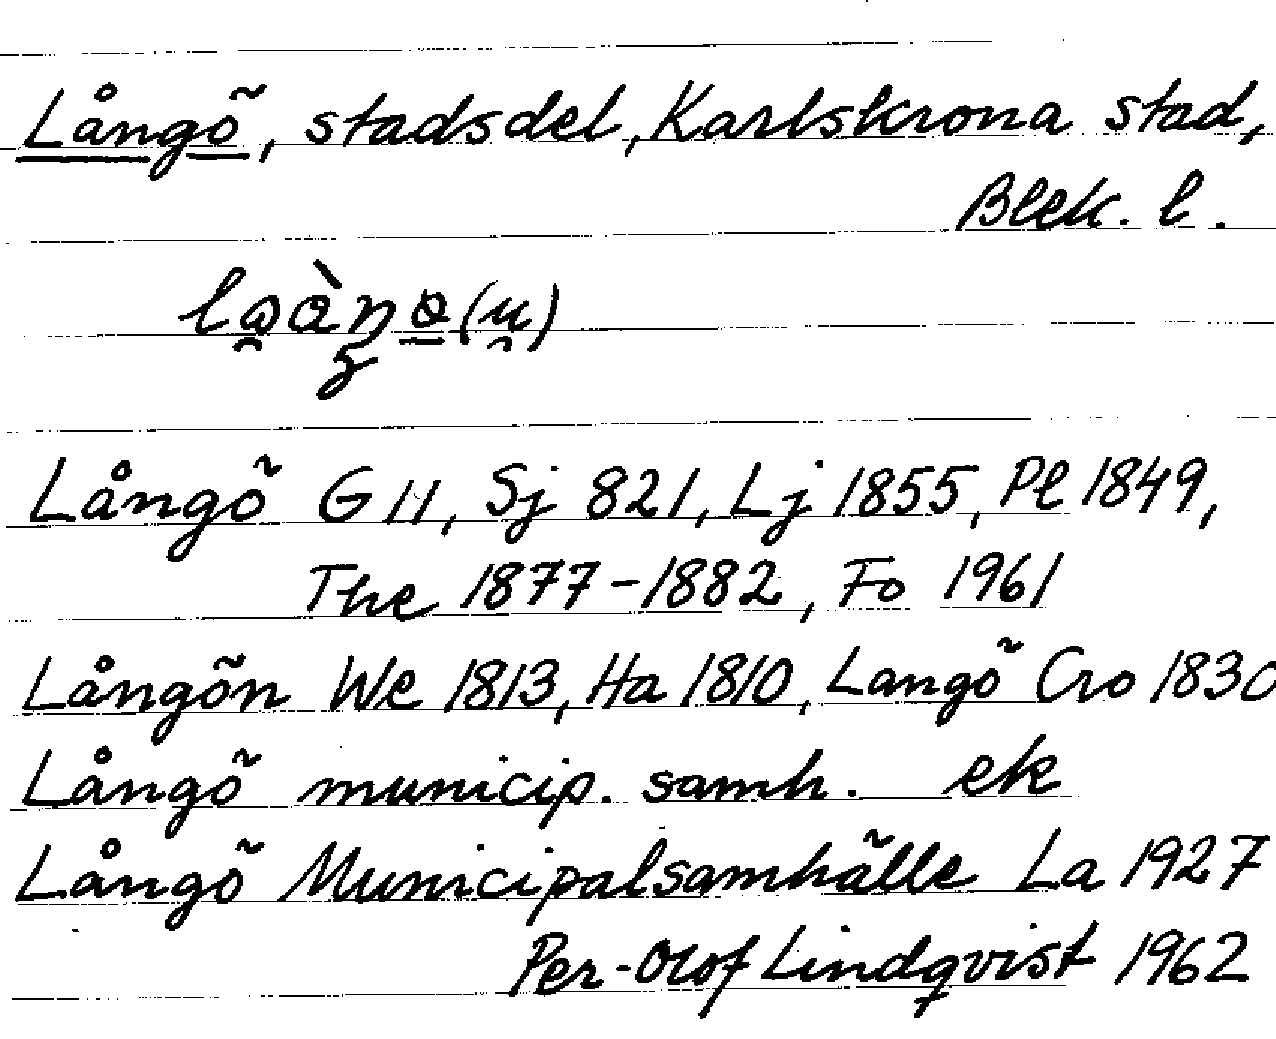 Långö, stadsdel, Karlskrona stad,
Blek. l.
Långö G 11, Sj 821, Lj 1855, Pl 1849,
The 1877-1882, Fo 1961
Långön We 1813, Ha 1810, Langö Cro 1830
Långö municip. samh. ek
Långö Municipalsamhälle La 1927
Per-Olof Lindqvist 1962